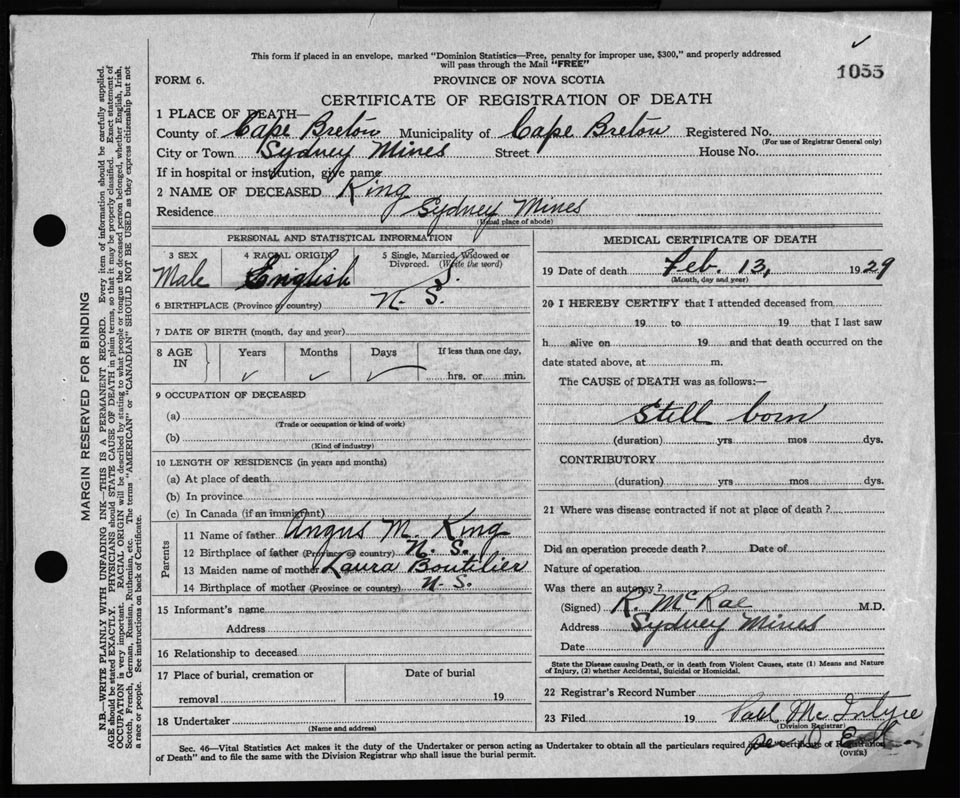 This form if placed in an envelope, marked "Dominion Statistics—Free, penalty for improper use, $300," and properly addressed
will pass through the Mail "FREE"
1055
FORM 6.
PROVINCE OF NOVA SCOTIA
CERTIFICATE OF REGISTRATION OF DEATH
1 PLACE OF DEATH—
County of Cape Breton Municipality of Cape Breton Registered No.
(For use of Registrar General only)
City or Town Sydney Mines Street House No.
If in hospital or institution, give name
2 NAME OF DECEASED King
Residence Sydney Mines
(Usual place of abode)
PERSONAL AND STATISTICAL INFORMATION
3 SEX 4 RACIAL ORIGIN 5 Single, Married, Widowed or
Divorced. (Write the word)
Male English S.
6 BIRTHPLACE (Province or country) N. S.
7 DATE OF BIRTH (month, day and year)
8 AGE IN Years Months Days If less than one day,
✓ ✓ ✓ hrs. or min.
9 OCCUPATION OF DECEASED
(a)
(Trade or occupation or kind of work)
(b)
(Kind of industry)
10 LENGTH OF RESIDENCE (in years and months)
(a) At place of death
(b) In province
(c) In Canada (if an immigrant)
Parents
11 Name of father Angus M. King
12 Birthplace of father (Province or country) N. S.
13 Maiden name of mother Laura Boutilier
14 Birthplace of mother (Province or country) N. S.
15 Informant's name
Address
16 Relationship to deceased
17 Place of burial, cremation or Date of burial
removal 19
18 Undertaker
(Name and address)
MEDICAL CERTIFICATE OF DEATH
19 Date of death Feb. 13, 1929
(Month, day and year)
20 I HEREBY CERTIFY that I attended deceased from
19 to 19 that I last saw
h alive on 19 and that death occurred on the
date stated above, at m.
The CAUSE of DEATH was as follows:—
Still born
(duration) yrs mos dys.
CONTRIBUTORY
(duration) yrs mos dys.
21 Where was disease contracted if not at place of death?
Did an operation precede death? Date of
Nature of operation
Was there an autopsy?
(Signed) R. McRae M.D.
Address Sydney Mines
Date
State the Disease causing Death, or in death from Violent Causes, state (1) Means and Nature
of Injury, (2) whether Accidental, Suicidal or Homicidal.
22 Registrar's Record Number
23 Filed 19 McIntyre
(Division Registrar)
Sec. 46—Vital Statistics Act makes it the duty of the Undertaker or person acting as Undertaker to obtain all the particulars required Certificate of Registration
of Death" and to file the same with the Division Registrar who shall issue the burial permit.
(OVER)
MARGIN RESERVED FOR BINDING
N.B.—WRITE PLAINLY WITH UNFADING INK—THIS IS A PERMANENT RECORD. Every item of information should be carefully supplied.
AGE should be stated EXACTLY. PHYSICIANS should STATE CAUSE OF DEATH in plain terms, so that it may be properly classified. Exact statement of
OCCUPATION is very important. RACIAL ORIGIN will be described by stating to what people or tongue the deceased person belonged, whether English, Irish,
Scotch, French, German, Russian, Ruthenian, etc. The terms "AMERICAN" or "CANADIAN" SHOULD NOT BE USED as they express citizenship but not
a race or people. See instructions on back of Certificate.